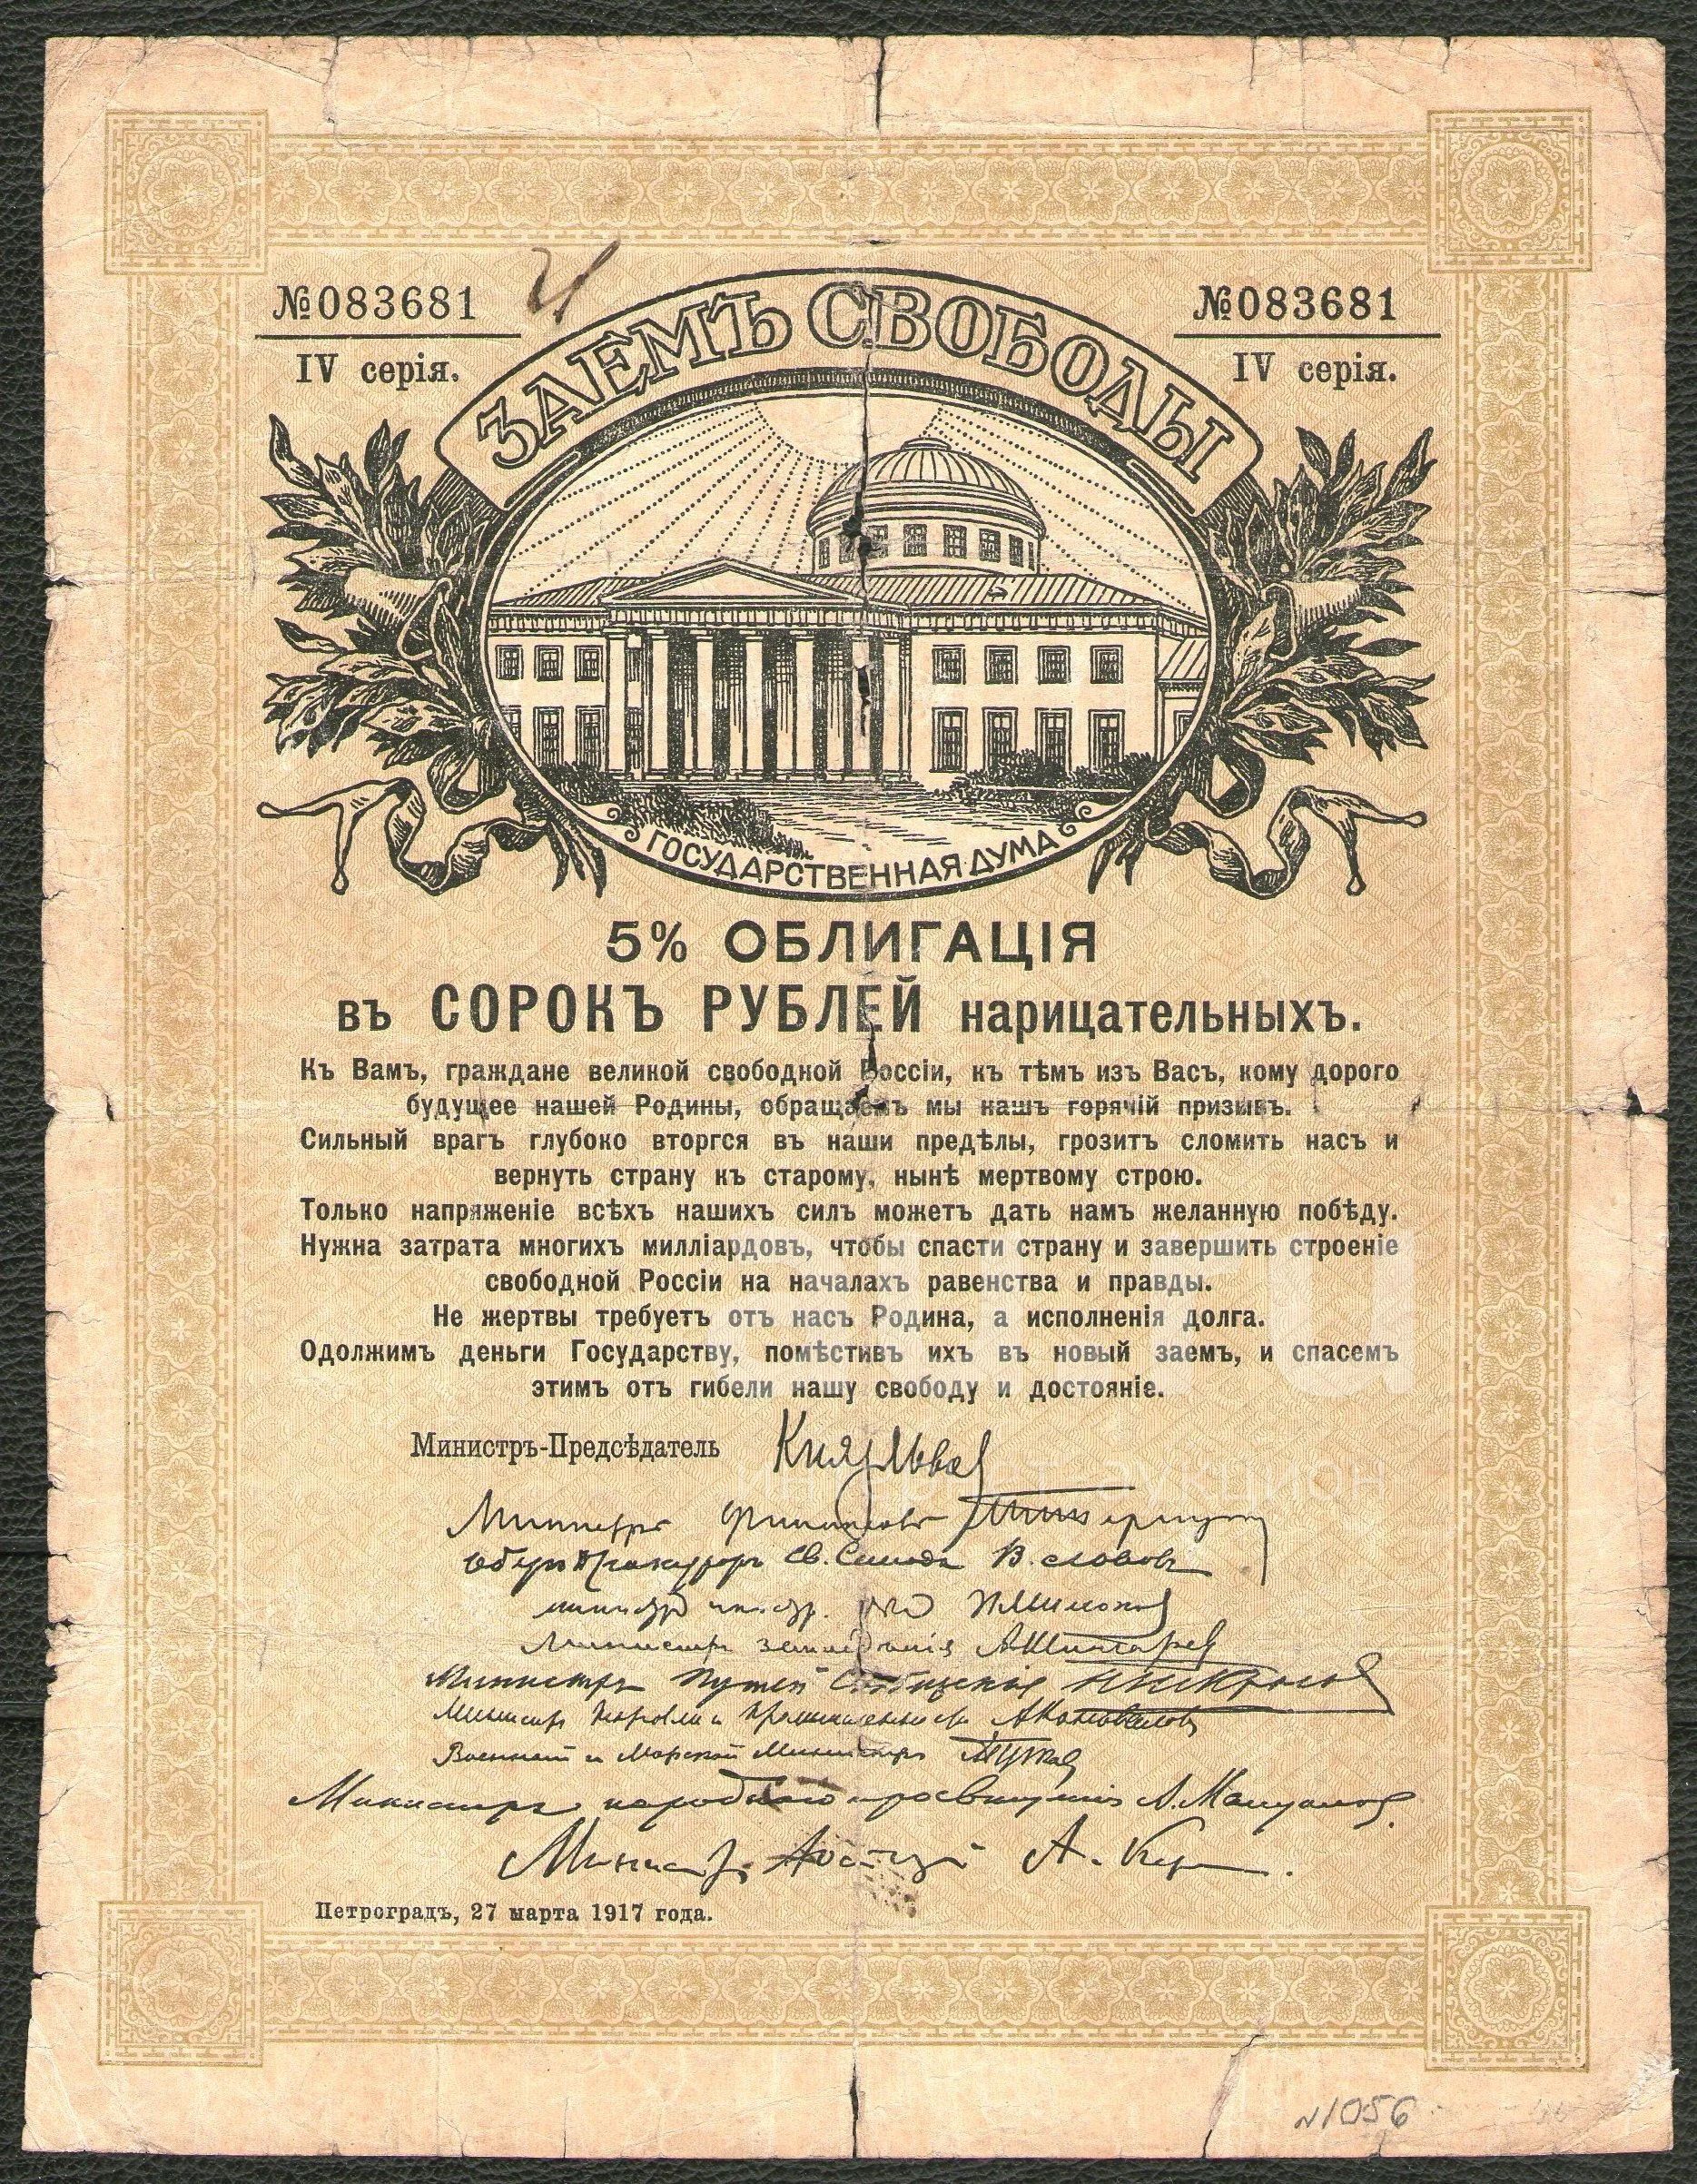 №083681
IV серія.
№083681
IV серія.
ЗАЕМЪ СВОБОДЫ
ГОСУДАРСТВЕННАЯ ДУМА
5% ОБЛИГАЦІЯ
въ СОРОКЪ РУБЛЕЙ нарицательныхъ.
Къ Вамъ, граждане великой свободной Россіи, къ тѣмъ изъ Васъ, кому дорого
будущее нашей Родины, обращаемъ мы нашъ горячій призывъ.
Сильный врагъ глубоко вторгся въ наши предѣлы, грозитъ сломить насъ и
вернуть страну къ старому, нынѣ мертвому строю.
Только напряженіе всѣхъ нашихъ силъ можетъ дать намъ желанную побѣду.
Нужна затрата многихъ милліардовъ, чтобы спасти страну и завершить строеніе
свободной Россіи на началахъ равенства и правды.
Не жертвы требуетъ отъ насъ Родина, а исполненія долга.
Одолжимъ деньги Государству, помѣстивъ ихъ въ новый заемъ, и спасемъ
этимъ отъ гибели нашу свободу и достояніе.
Министръ-Предсѣдатель Князь Львов
Министръ Финансовъ
Оберъ Прокуроръ Св. Синода В. Львовъ
П. Милюков
Министръ земледѣлія А Шингарев
Министръ Путей Сообщенія
Министръ Торговли и Промышленности А Коновалов
Военный и Морской Министръ
Министръ народнаго просвѣщенія А. Мануилов.
Министр Юстиціи А. Кер
Петроградъ, 27 марта 1917 года.
N1056